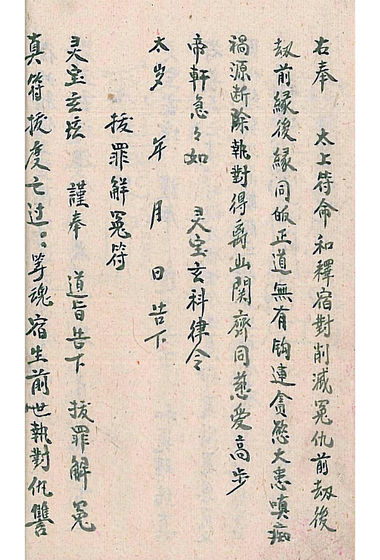 右奉　太上符命和釋宿對削減冤仇前劫後
劫前緣後緣同皈正道無有鉤連貪慾大恚嗔痴
禍源断除執對得昇山関齊同慈爱高步
帝軒急々如　灵宝玄科律令
太岁　年　月　日告下
拔罪解冤符
灵宝玄坛　謹奉　道旨告下　拔罪解冤
真符拔度亡过：等魂宿生前世執對仇讐